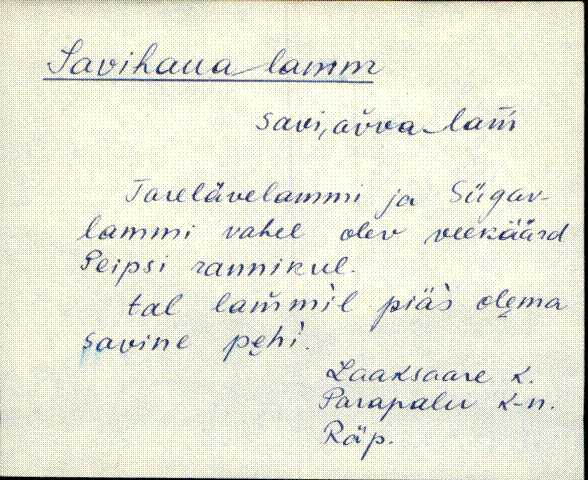 Savihaua lamm
savi,aüva lam̄
Tarelävelammi ja Sügav-
lammi vahel olev veekäärd
Peipsi rannikul.
tal lam̄mil piäs olema
savine pęhi.
Laaksaare k.
Parapalu k-n.
Räp.